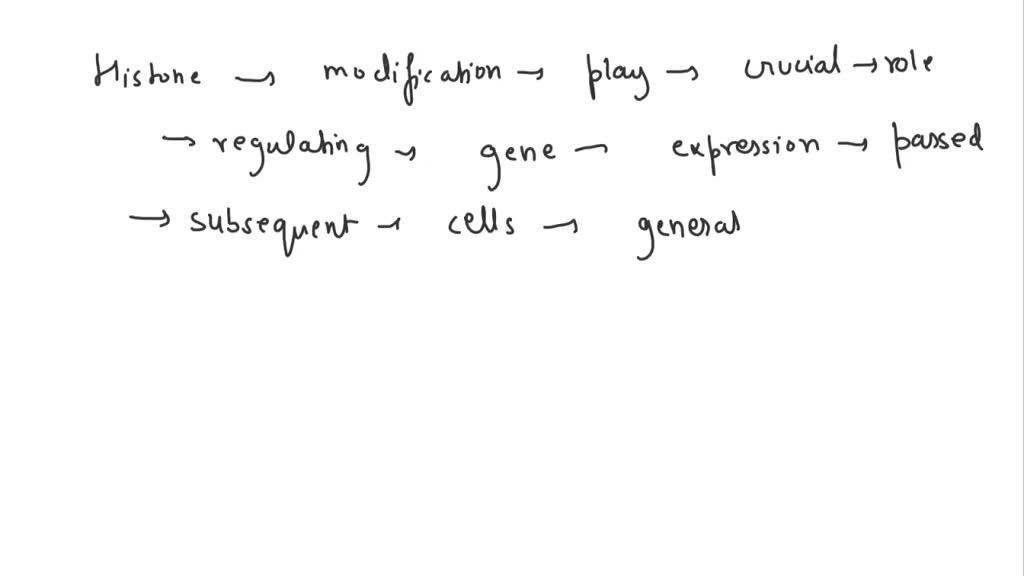 Histone → modification → play → crucial → role
→ regulating → gene → expression → passed
→ subsequent → cells → general